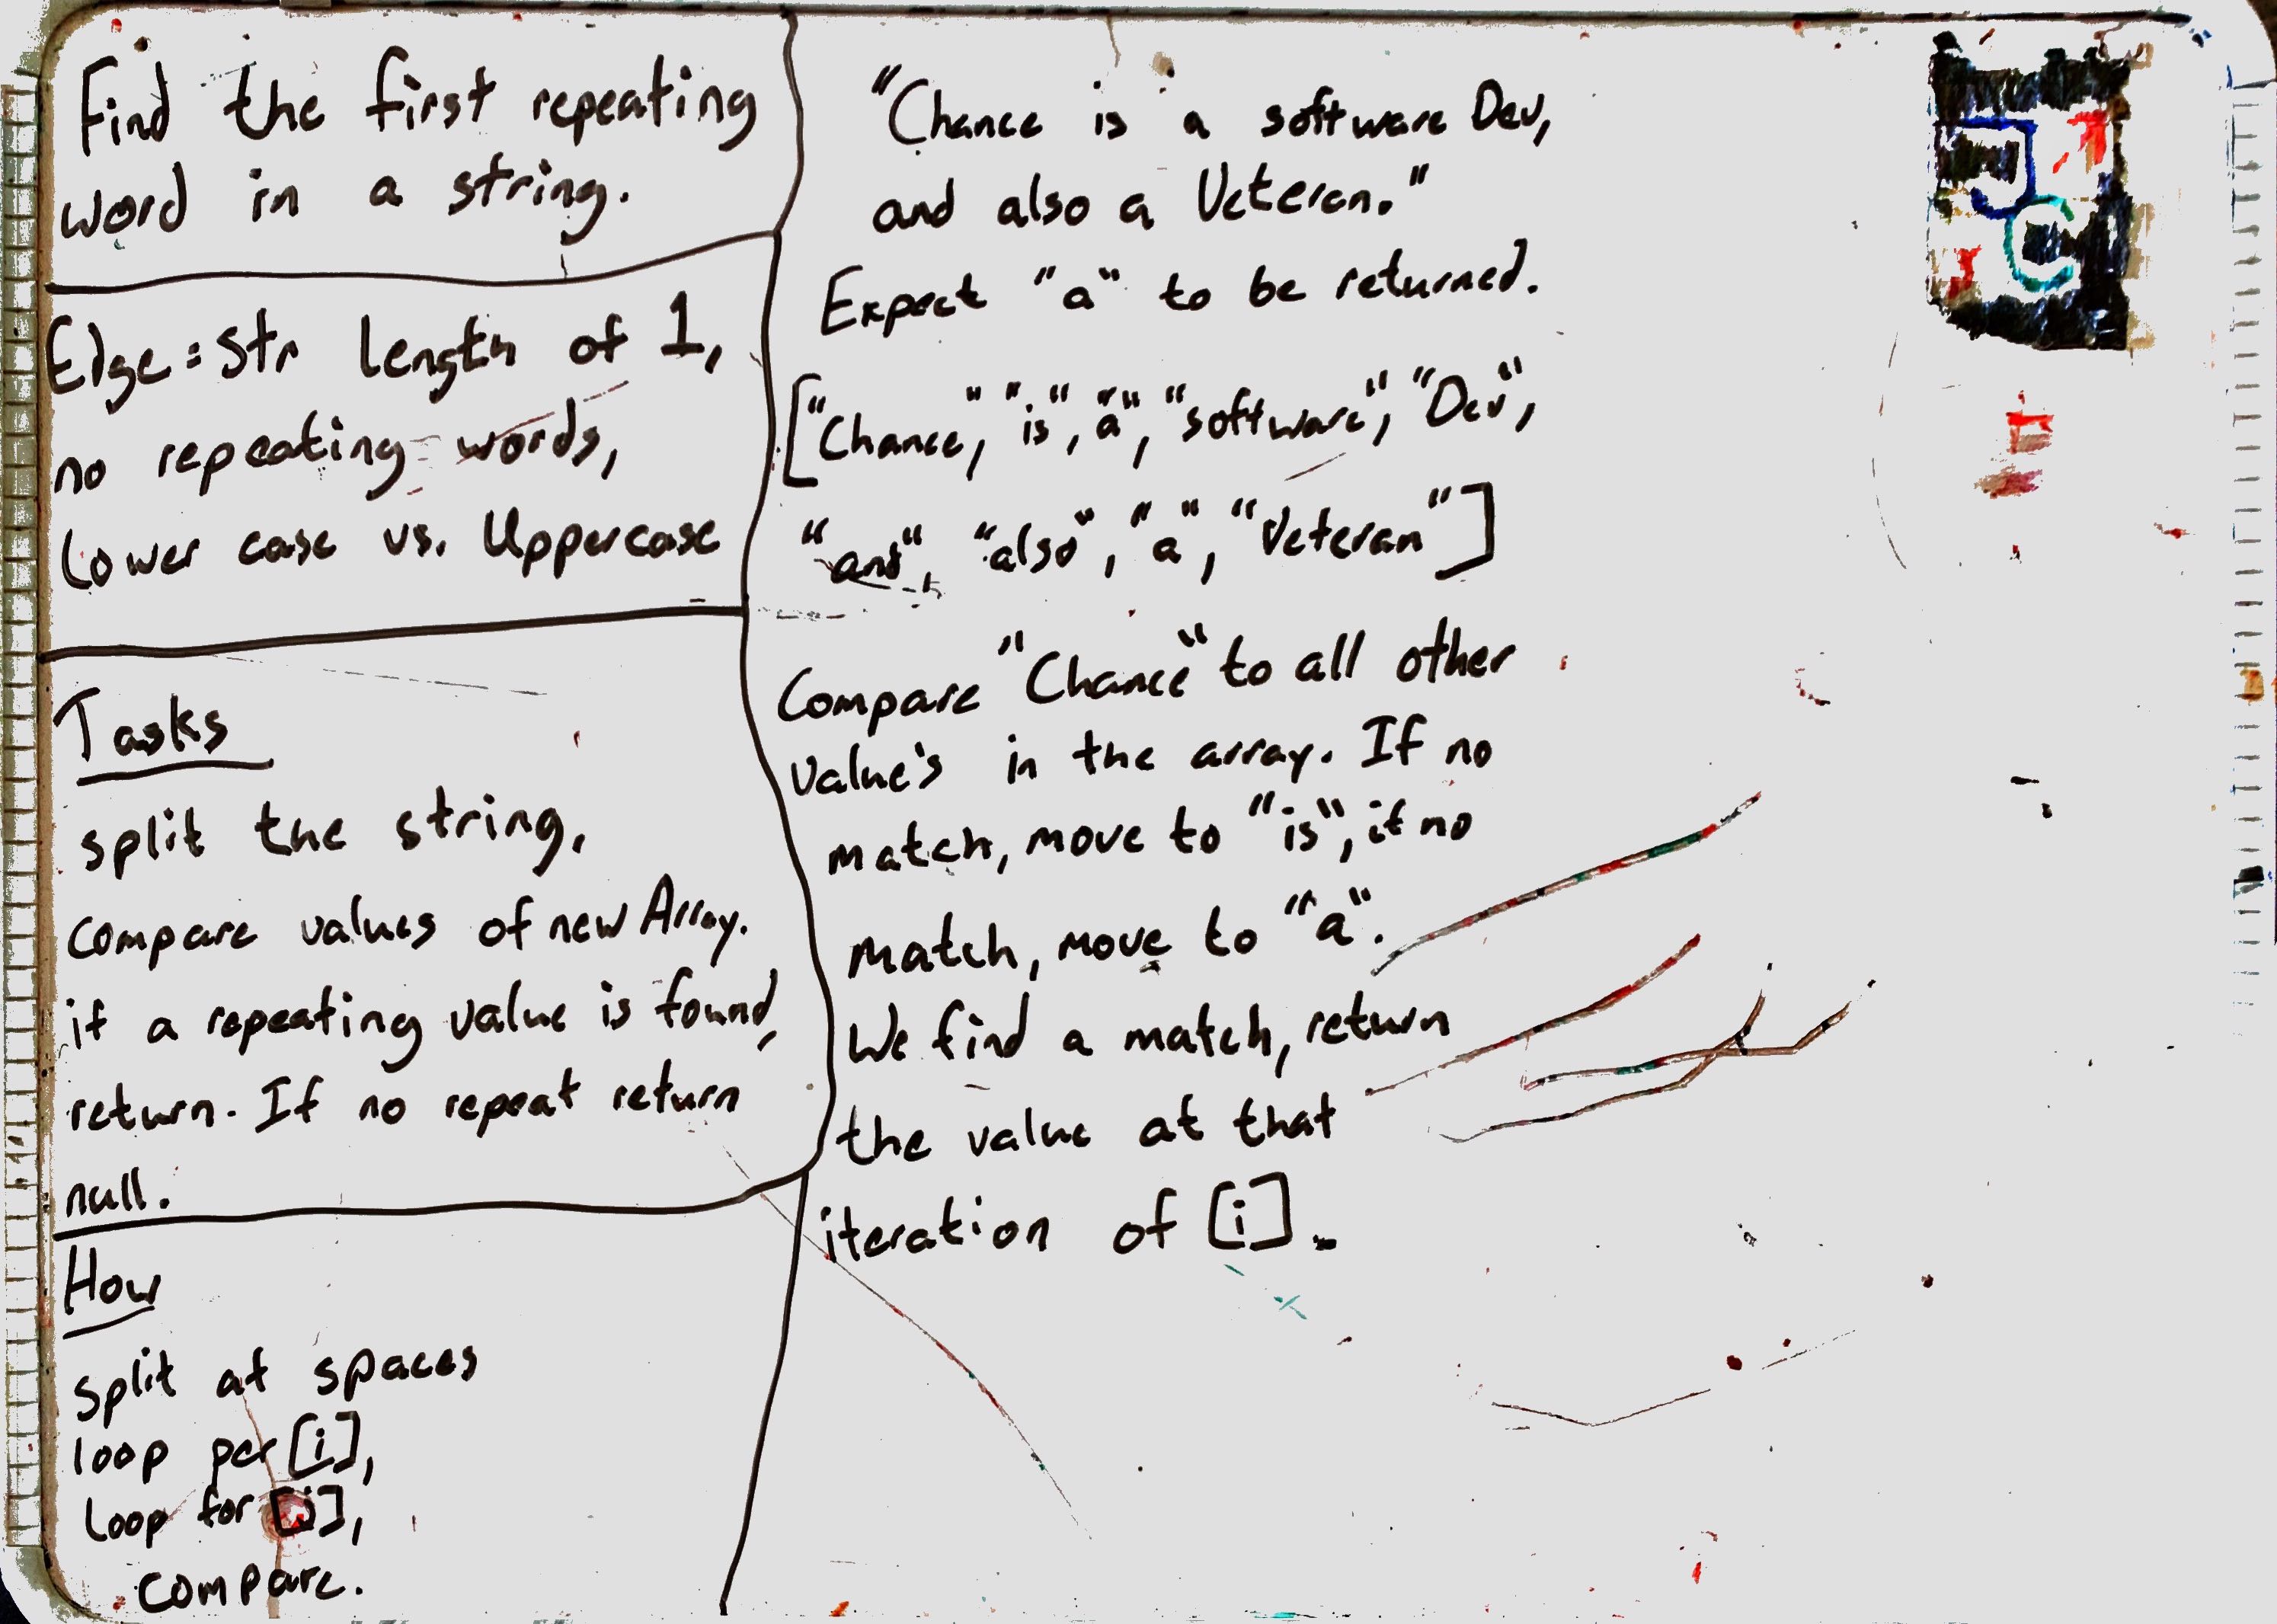 Find the first repeating
word in a string.
Edge: Str length of 1,
no repeating words,
Lower case vs. Uppercase
Tasks
split the string,
compare values of new Array.
if a repeating value is found,
return. If no repeat return
null.
How
split at spaces
loop per [i],
loop for [j],
compare.
"Chance is a software Dev,
and also a Veteran."
Expect "a" to be returned.
["Chance," "is", "a", "software", "Dev",
"and", "also", "a", "Veteran"]
Compare "Chance" to all other
value's in the array. If no
match, move to "is", if no
match, move to "a".
We find a match, return
the value at that
iteration of [i].